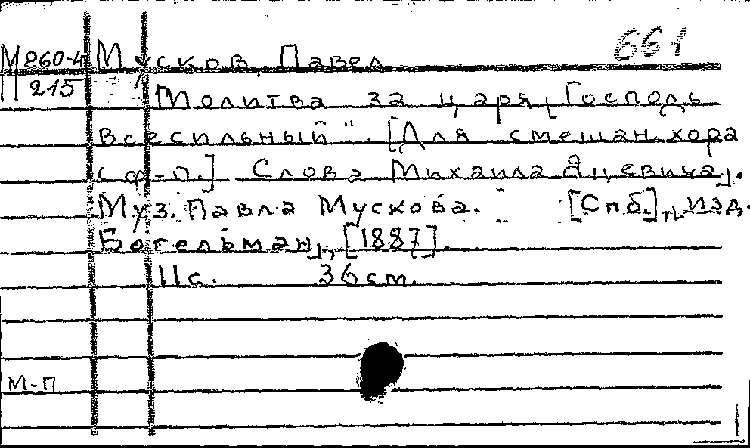 М 960-4 Мусков, Павел 661
215 Молитва за царя „Господь
всесильный". [Для смешан. хора
с ф-п.] Слова Михаила Яцевича.
Муз. Павла Мускова. [Спб.], изд.
Бетельман, [1887].
11 с. 36 см.
М-П